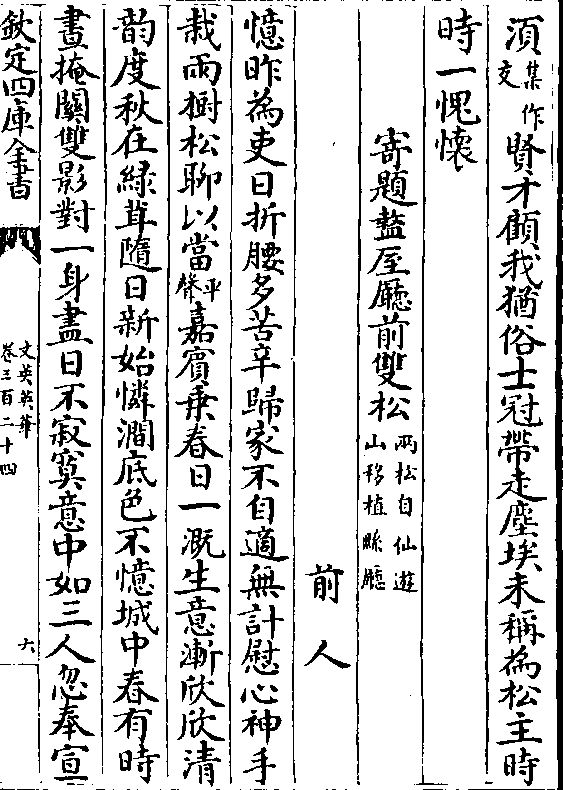 湏集作文賢才顧我猶俗士冠帶走塵埃未稱為松主時
時一愧懐
寄題盩厔廳前雙松兩松自仙遊山移植縣廳
前人
憶昨為吏日折腰多苦辛歸家不自適無計慰心神手
栽兩樹松聊以當平聲嘉賔乗春日一溉生意漸欣欣清
韵度秋在緑茸隨日新始憐澗底色不憶城中春有時
晝掩關雙影對一身盡日不寂寞意中如三人忽奉宣
欽定四庫全書
文苑英華
卷三百二十四
六